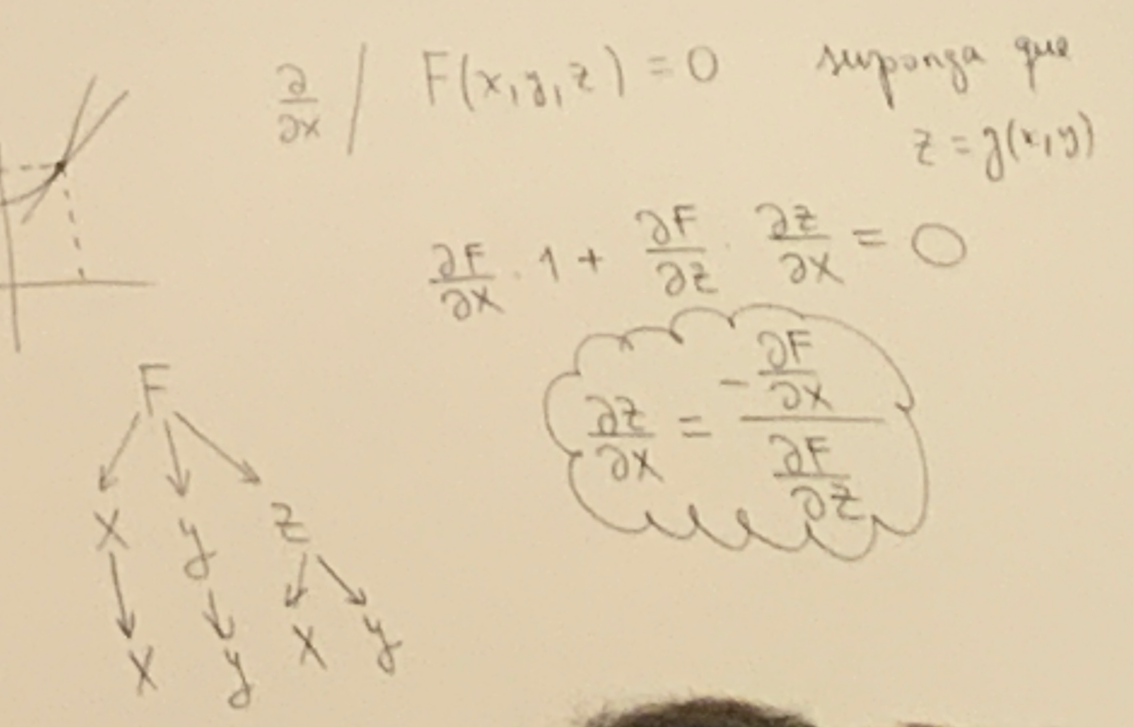 ∂/∂x | F(x,y,z) = 0 suponga que
z = g(x,y)
∂F/∂x · 1 + ∂F/∂z · ∂z/∂x = 0
∂z/∂x = (-∂F/∂x)/(∂F/∂z)
F
x y z
x y x y